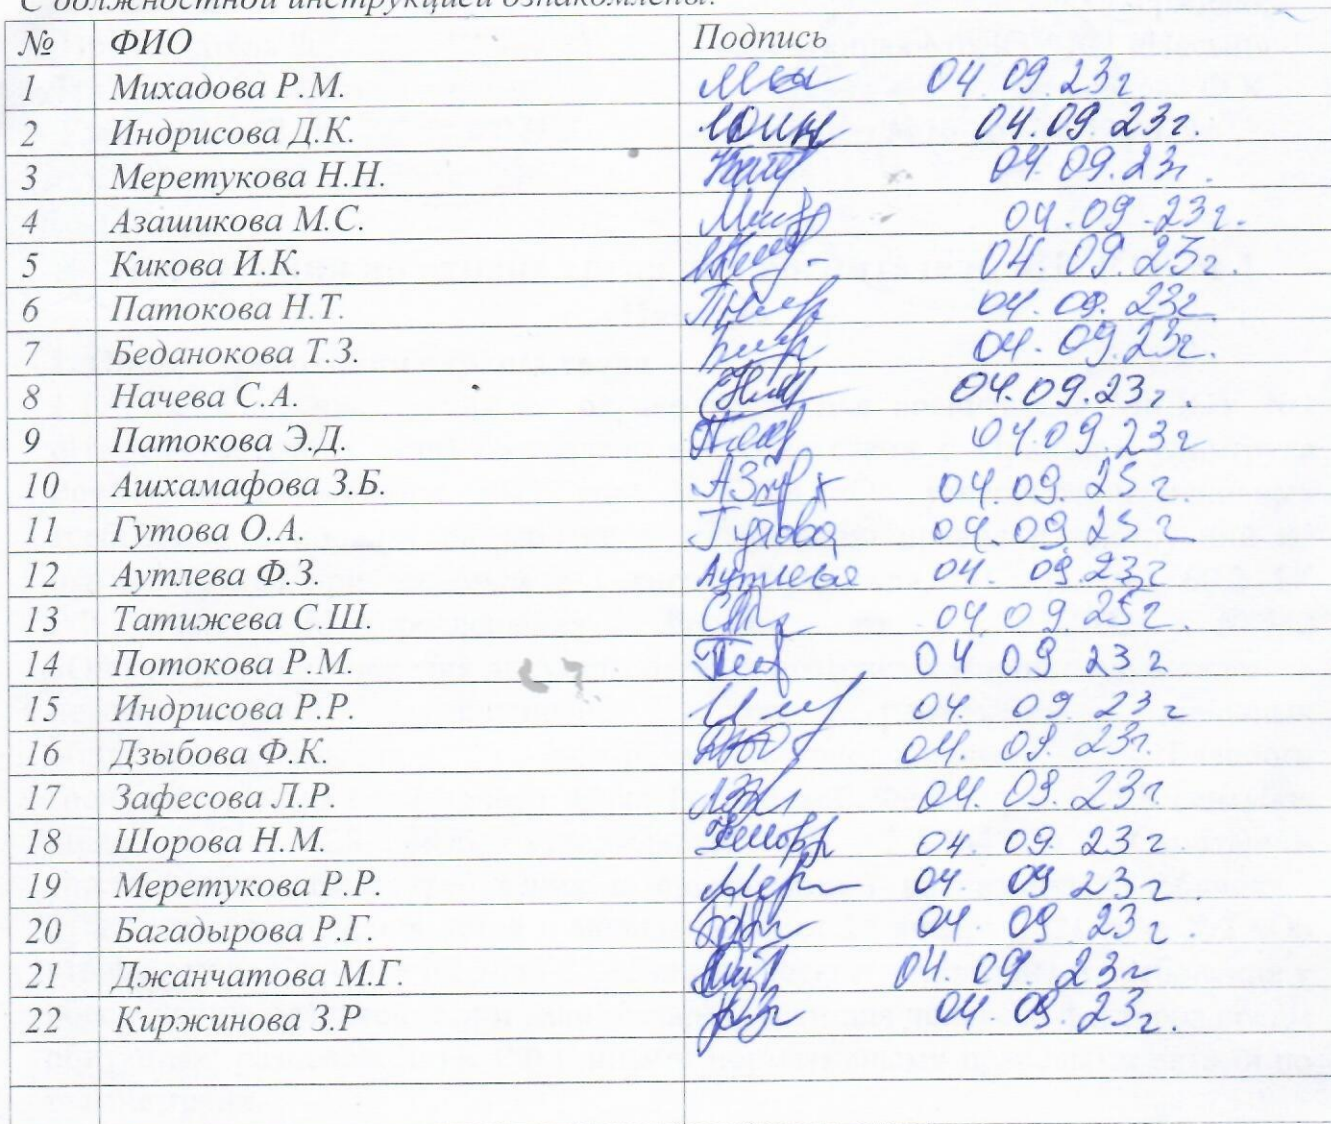 С должностной инструкцией ознакомлены:
№ ФИО Подпись
1 Михадова Р.М. 04.09.23г
2 Индрисова Д.К. 04.09.23г.
3 Меретукова Н.Н. 04.09.23г.
4 Азашикова М.С. 04.09.23г.
5 Кикова И.К. 04.09.23г.
6 Патокова Н.Т. 04.09.23г
7 Беданокова Т.З. 04.09.23г.
8 Начева С.А. 04.09.23г.
9 Патокова Э.Д. 04.09.23г
10 Ашхамафова З.Б. 04.09.23г.
11 Гутова О.А. Гутова 04.09.23г
12 Аутлева Ф.З. Аутлева 04.09.23г
13 Татижева С.Ш. 04.09.23г.
14 Потокова Р.М. 04 09 23 г
15 Индрисова Р.Р. 04. 09 23 г
16 Дзыбова Ф.К. 04. 09. 23г.
17 Зафесова Л.Р. 04. 09. 23г.
18 Шорова Н.М. 04. 09. 23 г
19 Меретукова Р.Р. 04. 09 23г.
20 Багадырова Р.Г. 04. 09 23 г.
21 Джанчатова М.Г. 04. 09. 23г
22 Киржинова З.Р 04. 09. 23г.